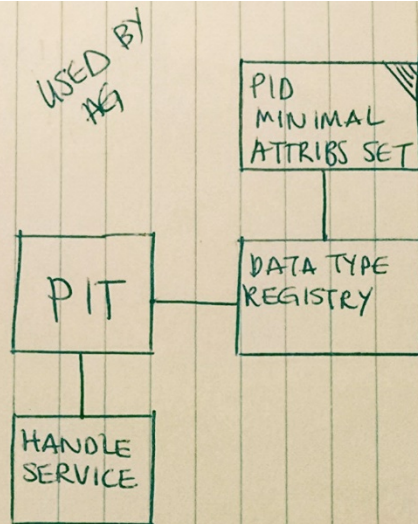 USED BY
AG
PID
MINIMAL
ATTRIBS SET
PIT
DATA TYPE
REGISTRY
HANDLE
SERVICE